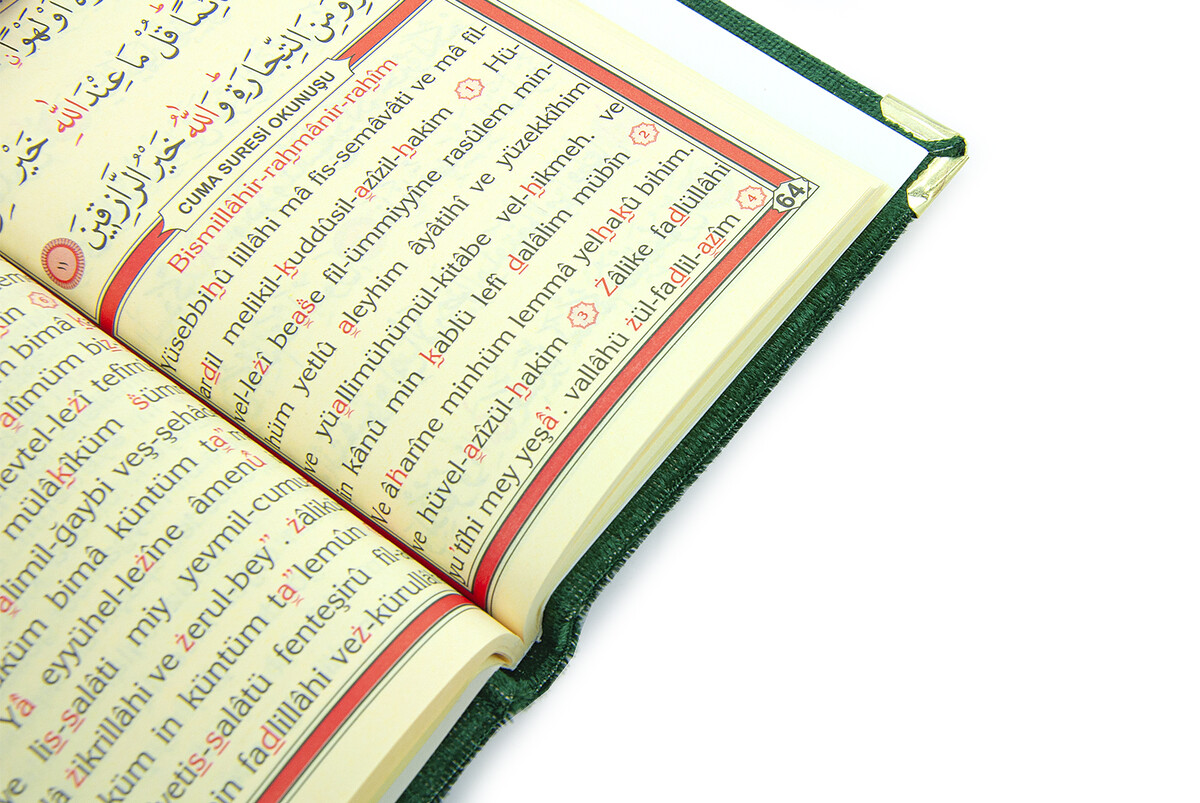 اَوْ لَهْوًا
قُلْ مَا عِنْدَ اللّٰهِ خَيْرٌ
وَمِنَ التِّجَارَةِ وَاللّٰهُ خَيْرُ الرَّازِقِينَ ١١
CUMA SURESİ OKUNUŞU
Bismillâhir-rahmânir-rahîm
Yüsebbihû lillâhi mâ fis-semâvâti ve mâ fil-
ardil melikil-kuddûsil-azîzil-hakîm 1 Hü-
vel-lezî bease fil-ümmiyyîne rasûlem min-
hüm yetlû aleyhim âyâtihî ve yüzekkîhim
ve yüallimühümül-kitâbe vel-hikmeh. ve
in kânû min kablü lefî dalâlim mübîn 2
Ve âharîne minhüm lemmâ yelhakû bihim.
ve hüvel-azîzül-hakîm 3 Zâlike fadlüllâhi
yu'tîhi mey yeşâ'. vallâhü zül-fadlil-azîm 4
64
6
bimâ
alimüm biz-
tevtel-lezî
mülâkîküm sümm
alimil-ğaybi veş-şehâde
küm bimâ küntüm ta'
Yâ eyyühel-lezîne âmenû
lis-salâti miy yevmil-cumu
zikrillâhi ve zerul-bey'. zâlikü
küm in küntüm ta'lemûn
salâtü fenteşirû fil-
in fadlillâhi vez-kürullâ